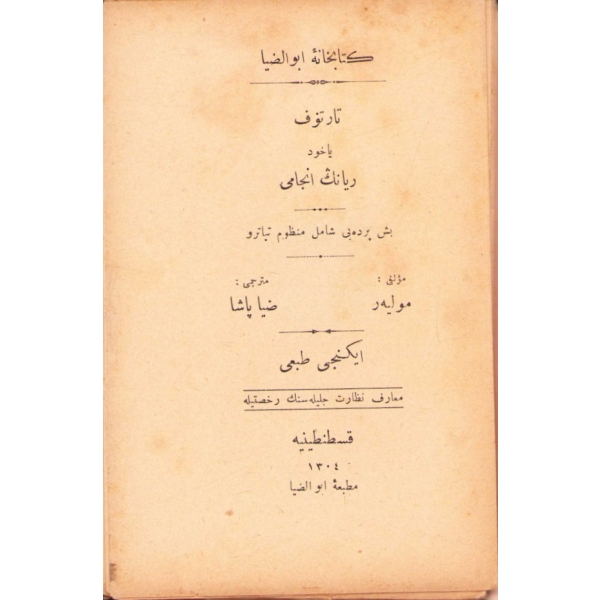 كتابخانهٔ ابوالضيا
تارتوف
ياخود
ريانڭ انجامى
بش پرده‌يى شامل منظوم تياترو
مؤلفى :
موليەر
مترجمى :
ضيا پاشا
ايكنجى طبعى
معارف نظارت جليله‌سنك رخصتيله
قسطنطينيه
١٣٠٤
مطبعهٔ ابوالضيا